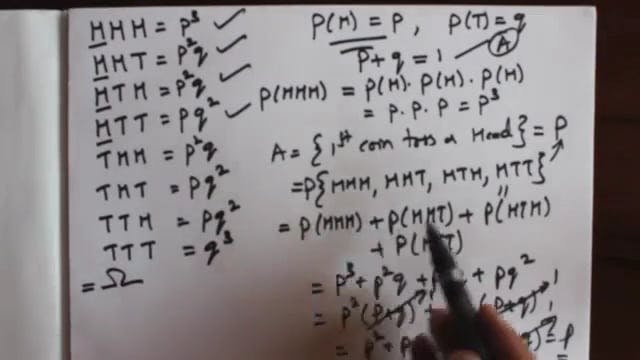 HHH = p³ ✓
HHT = p²q ✓
HTH = p²q ✓
HTT = pq² ✓
THH = p²q
THT = pq²
TTH = pq²
TTT = q³
= Ω
P(H) = p, P(T) = q
p+q = 1 Ⓐ
P(HHH) = P(H) · P(H) · P(H)
= p · p · p = p³
A = {1st coin toss a Head} = p
= P{HHH, HHT, HTH, HTT}
= P(HHH) + P(HHT) + P(HTH)
+ P(HTT)
= p³ + p²q + + pq²
= p²(p+q) + (p+q) 1
= p² + = p